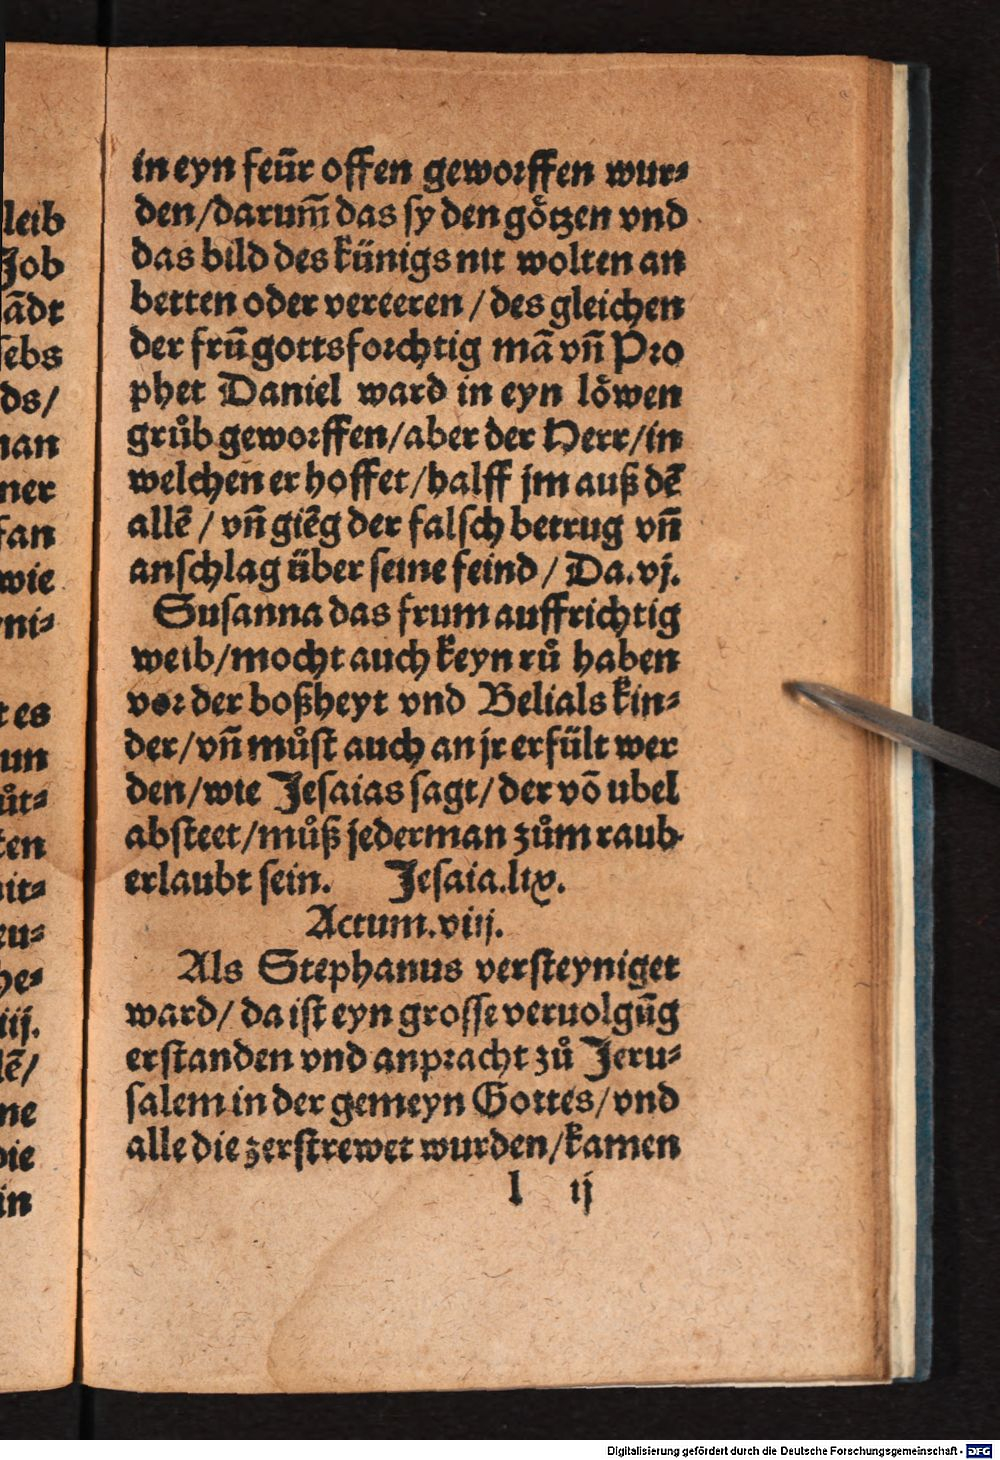 leib
Job
ãdt
sebs
ds/
man
ner
fan
wie
ni⸗
t es
un
ůt⸗
ten
it⸗
eu⸗
he⸗
iij.
lẽ/
ne
die
in
in eyn feũr offen geworffen wur⸗
den/darum̃ das sy den götzen vnd
das bild des künigs nit wolten an
betten oder vereeren / des gleichen
der frũ gottsforchtig mã vñ Pro
phet Daniel ward in eyn löwen
grůb geworffen/aber der Herr/in
welchen er hoffet/halff jm auß dẽ
allẽ / vñ giẽg der falsch betrug vñ
anschlag über seine feind / Da.vj.
Susanna das frum auffrichtig
weib/mocht auch keyn rů haben
vor der boßheyt vnd Belials kin⸗
der/vñ můst auch an jr erfült wer
den/wie Jesaias sagt/der võ ubel
absteet/můß jederman zům raub
erlaubt sein. Jesaia.lix.
Actum.viij.
Als Stephanus versteyniget
ward/ da ist eyn grosse veruolgũg
erstanden vnd anpracht zů Jeru⸗
salem in der gemeyn Gottes/vnd
alle die zerstrewet wurden/kamen
l ij
Digitalisierung gefördert durch die Deutsche Forschungsgemeinschaft - DFG